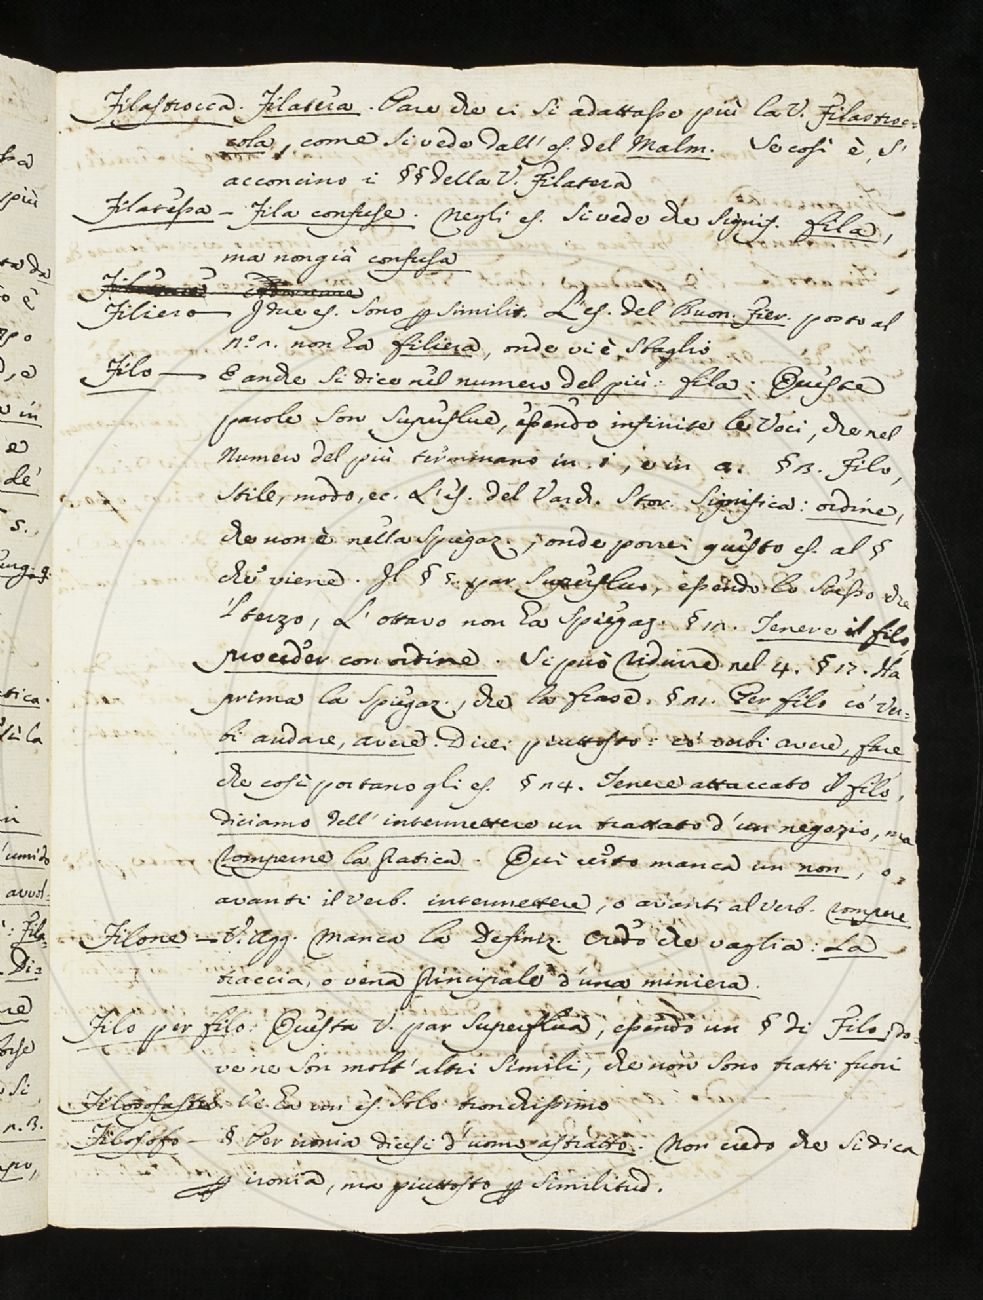 Filastrocca. Filatera. Pare che ci si adattasse più la V. Filastroc=
cola, come si vede dall'es. del Malm. Se così è, s'
acconcino i §§ della V. Filatera
Filatessa - Fila confuse. Negli es. si vede che signif. fila,
ma non già confusa
Filiera — I due es. sono p similit. L'es. del Buon. Fier. posto al
n.º 1. non ha filiera, onde vi è sbaglio
Filo — E anche si dice nel numero del più: fila: Queste
parole son superflue, essendo infinite le Voci, che nel
Numero del più terminano in i, e in a. § 3. Filo,
stile, modo, ec. L'es. del Varch. Stor. significa: ordine,
che non è nella spiegaz.; onde porrei questo es. al §
che viene. Il § 5. par superfluo, essendo lo stesso che
'l terzo, L'ottavo non ha spiegaz. § 11. Tenere il filo,
proceder con ordine. Si può ridurre nel 4. § 17. Ha
prima la spiegaz., che la frase. § 21. Per filo co' Ver=
bi andare, avere. Direi piuttosto: co' verbi avere, fare
che così portano gli es. § 24. Tenere attaccato il filo,
diciamo dell'intermettere un trattato d'un negozio, ma
romperne la pratica. Qui certo manca un non, o
avanti il verb. intermettere, o avanti al verb. rompere
Filone — V. Agg. Manca la Definiz. Credo che vaglia: La
traccia, o vena principale d'una miniera.
Filo per filo: Questa V. par superflua, essendo un § di Filo, do=
ve ne son molt'altri simili, che non sono tratti fuori
Filosofastro. Vi ha un es. solo tronchissimo
Filosofo — § Per ironia dicesi d'uomo astratto. Non credo che si dica
p ironia, ma piuttosto p similitud.